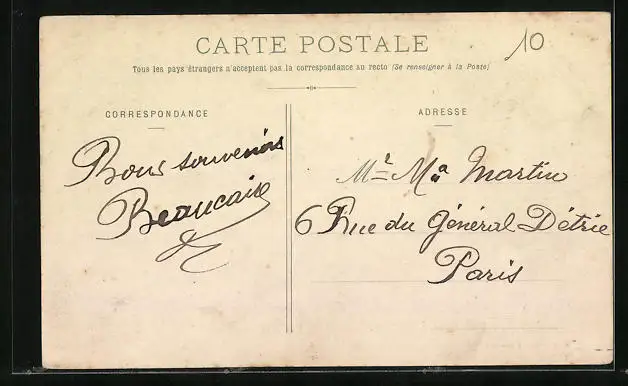 CARTE POSTALE
10
Tous les pays étrangers n'acceptent pas la correspondance au recto (Se renseigner à la Poste)
CORRESPONDANCE
Bons souvenirs
Beaucaire
ADRESSE
Mr Ma Martin
6 Rue du Général Détrie
Paris